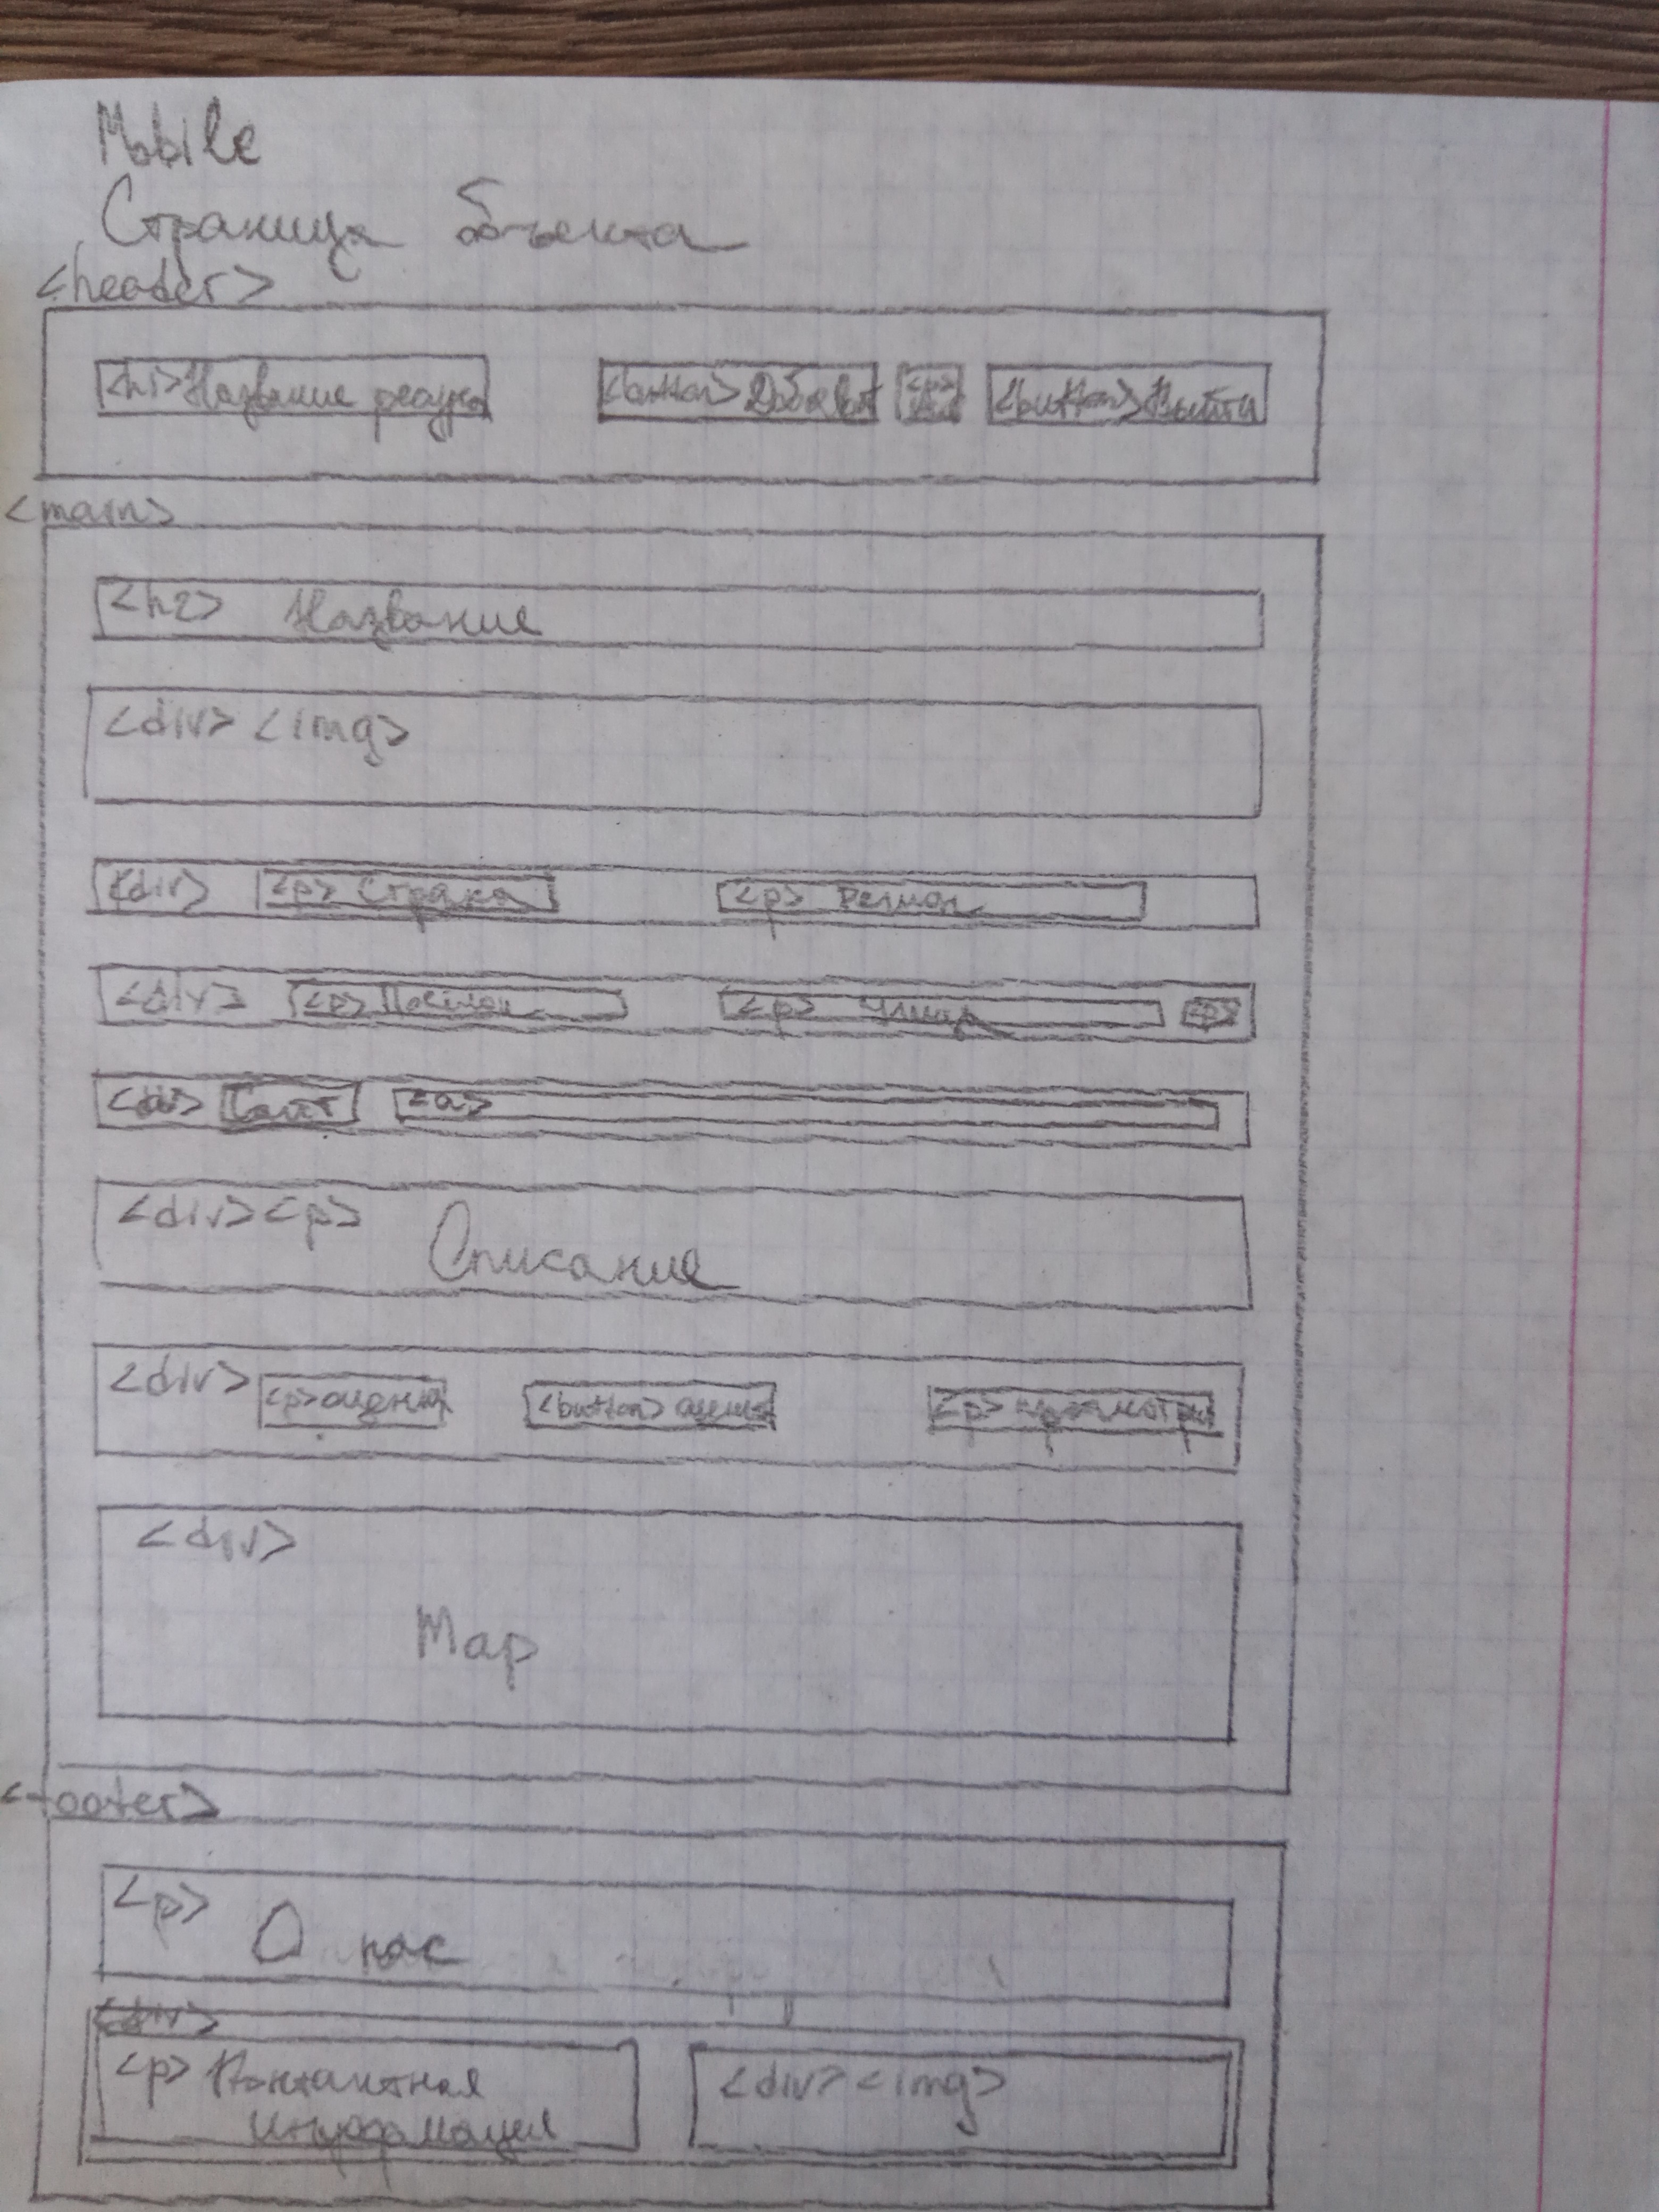 Mobile
Страница объекта
<header>
<h1> Название ресурса <button> Добавит <p> <button> Выйти
<main>
<h2> Название
<div> <img>
<div> <p> Страна <p> Регион
<div> <p> <p> Улица <p>
<div> Сайт <a>
<div> <p> Описание
<div> <p> оценка <button> оценка <p> просмотры
<div>
Map
<footer>
<p> О нас
<div>
<p> Контактная <div> <img>
информация